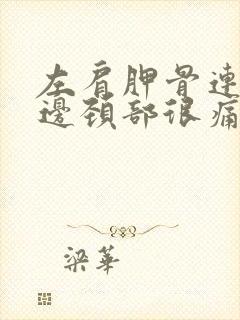 左肩胛骨連
邊頸部很痛
梁華